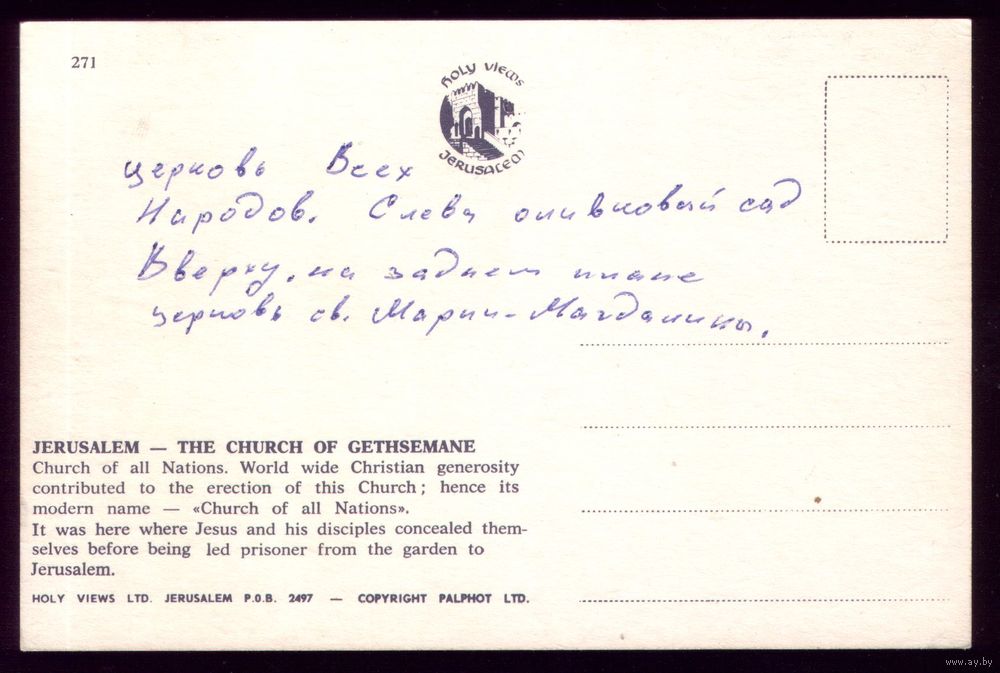 271
HOLY VIEWS
JERUSALEM
церковь Всех
Народов. Слева оливковый сад
Вверху, на заднем плане
церковь св. Марии-Магдалины.
JERUSALEM — THE CHURCH OF GETHSEMANE
Church of all Nations. World wide Christian generosity
contributed to the erection of this Church; hence its
modern name — «Church of all Nations».
It was here where Jesus and his disciples concealed them-
selves before being led prisoner from the garden to
Jerusalem.
HOLY VIEWS LTD. JERUSALEM P.O.B. 2497 — COPYRIGHT PALPHOT LTD.
www.ay.by